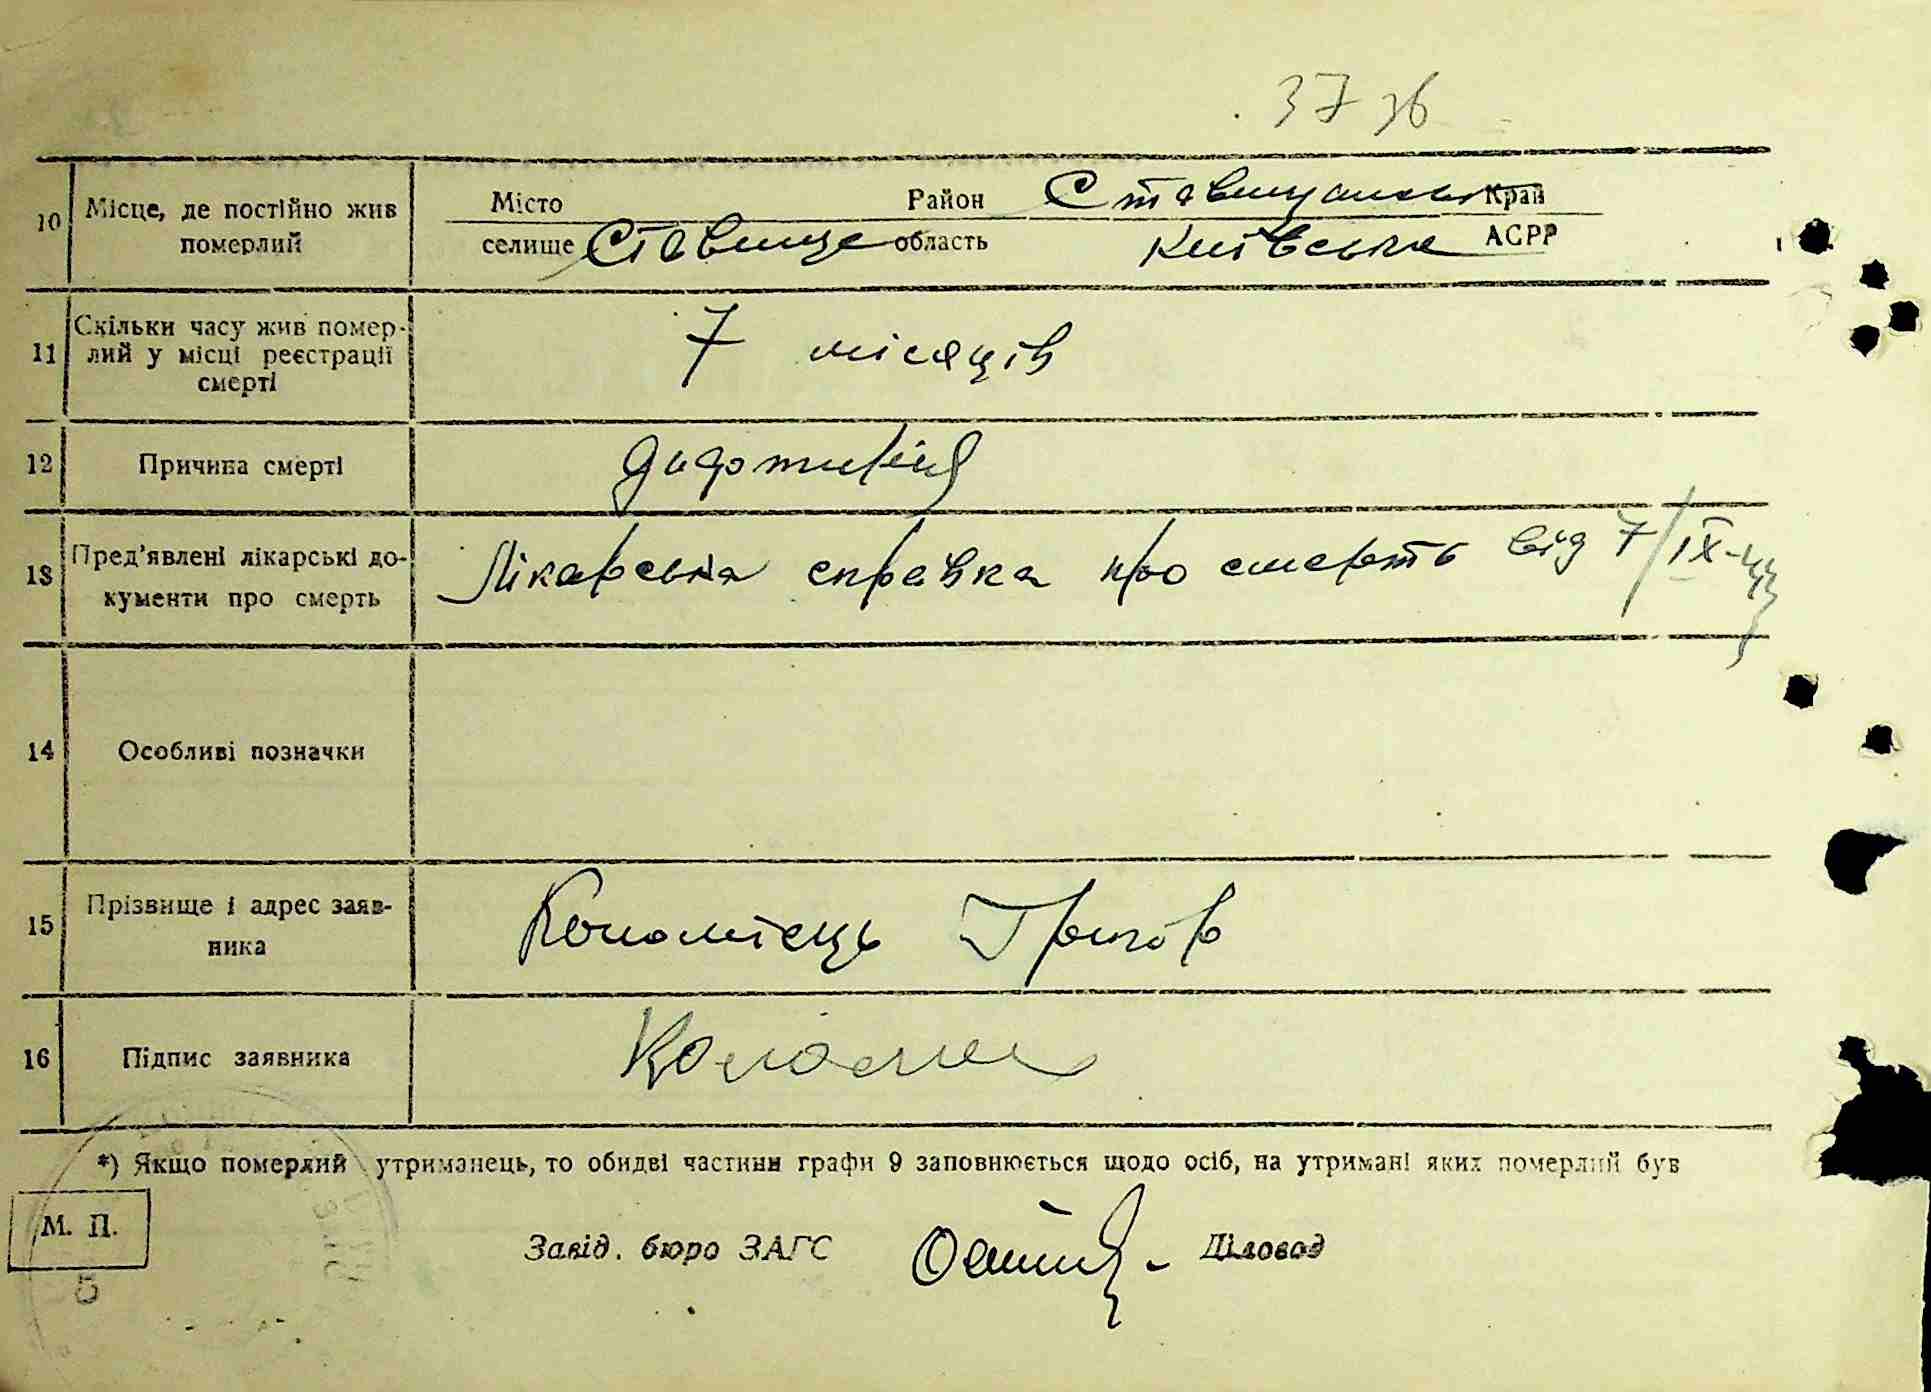 37 зв
10 Місце, де постійно жив померлий Місто Район Ставищанськ Край
селище Ставище область Київська АСРР
11 Скільки часу жив помер-
лий у місці реєстрації
смерті
7 місяців
12 Причина смерті
13 Пред'явлені лікарські до-
кументи про смерть
Лікарська справка про смерть від 7/IX-44
14 Особливі позначки
15 Прізвище і адрес заяв-
ника
Коломієць Григор
16 Підпис заявника
*) Якщо померлий утриманець, то обидві частини графи 9 заповнюється щодо осіб, на утримані яких померлий був
М. П.
Завід. бюро ЗАГС Діловод